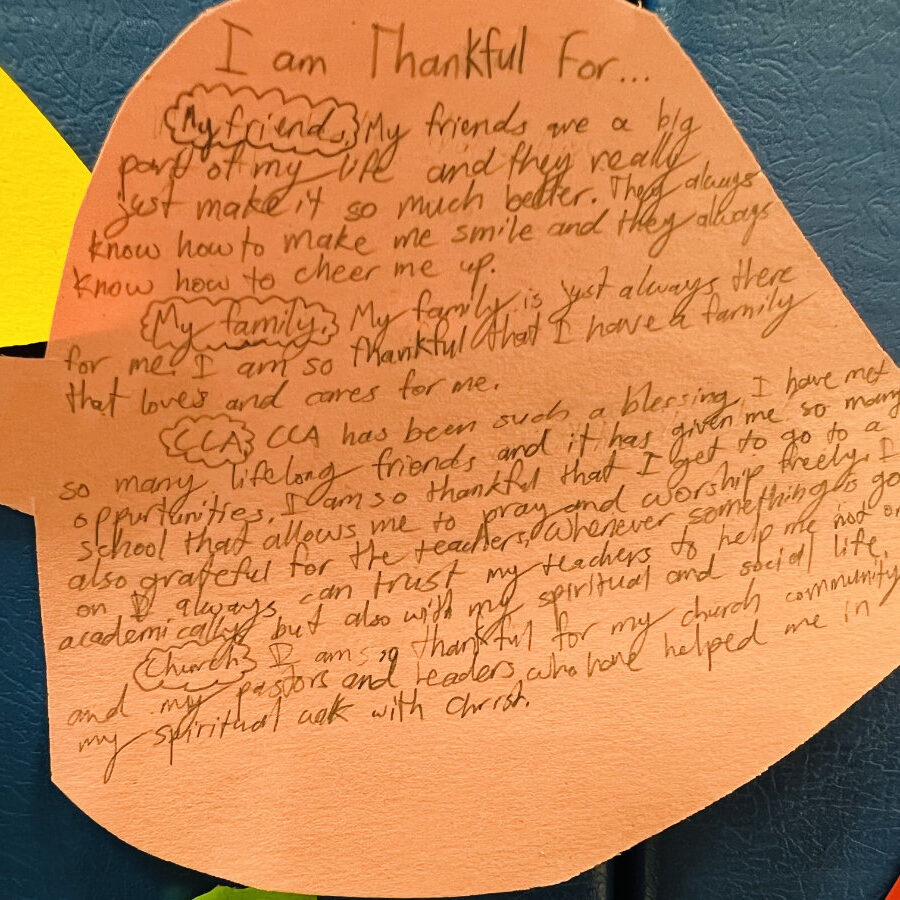 I am Thankful For...
My friends. My friends are a big
part of my life and they really
just make it so much better. They always
know how to make me smile and they always
know how to cheer me up.
My family. My family is just always there
for me. I am so thankful that I have a family
that loves and cares for me.
CCA CCA has been such a blessing. I have met
so many lifelong friends and it has given me so many
oppurtunities. I am so thankful that I get to go to a
school that allows me to pray and worship freely. I
also grateful for the teachers. Whenever something is go
on I always can trust my teachers to help me not on
academically but also with my spiritual and social life.
Church I am so thankful for my church community
and my pastors and leaders who have helped me in
my spiritual walk with Christ.